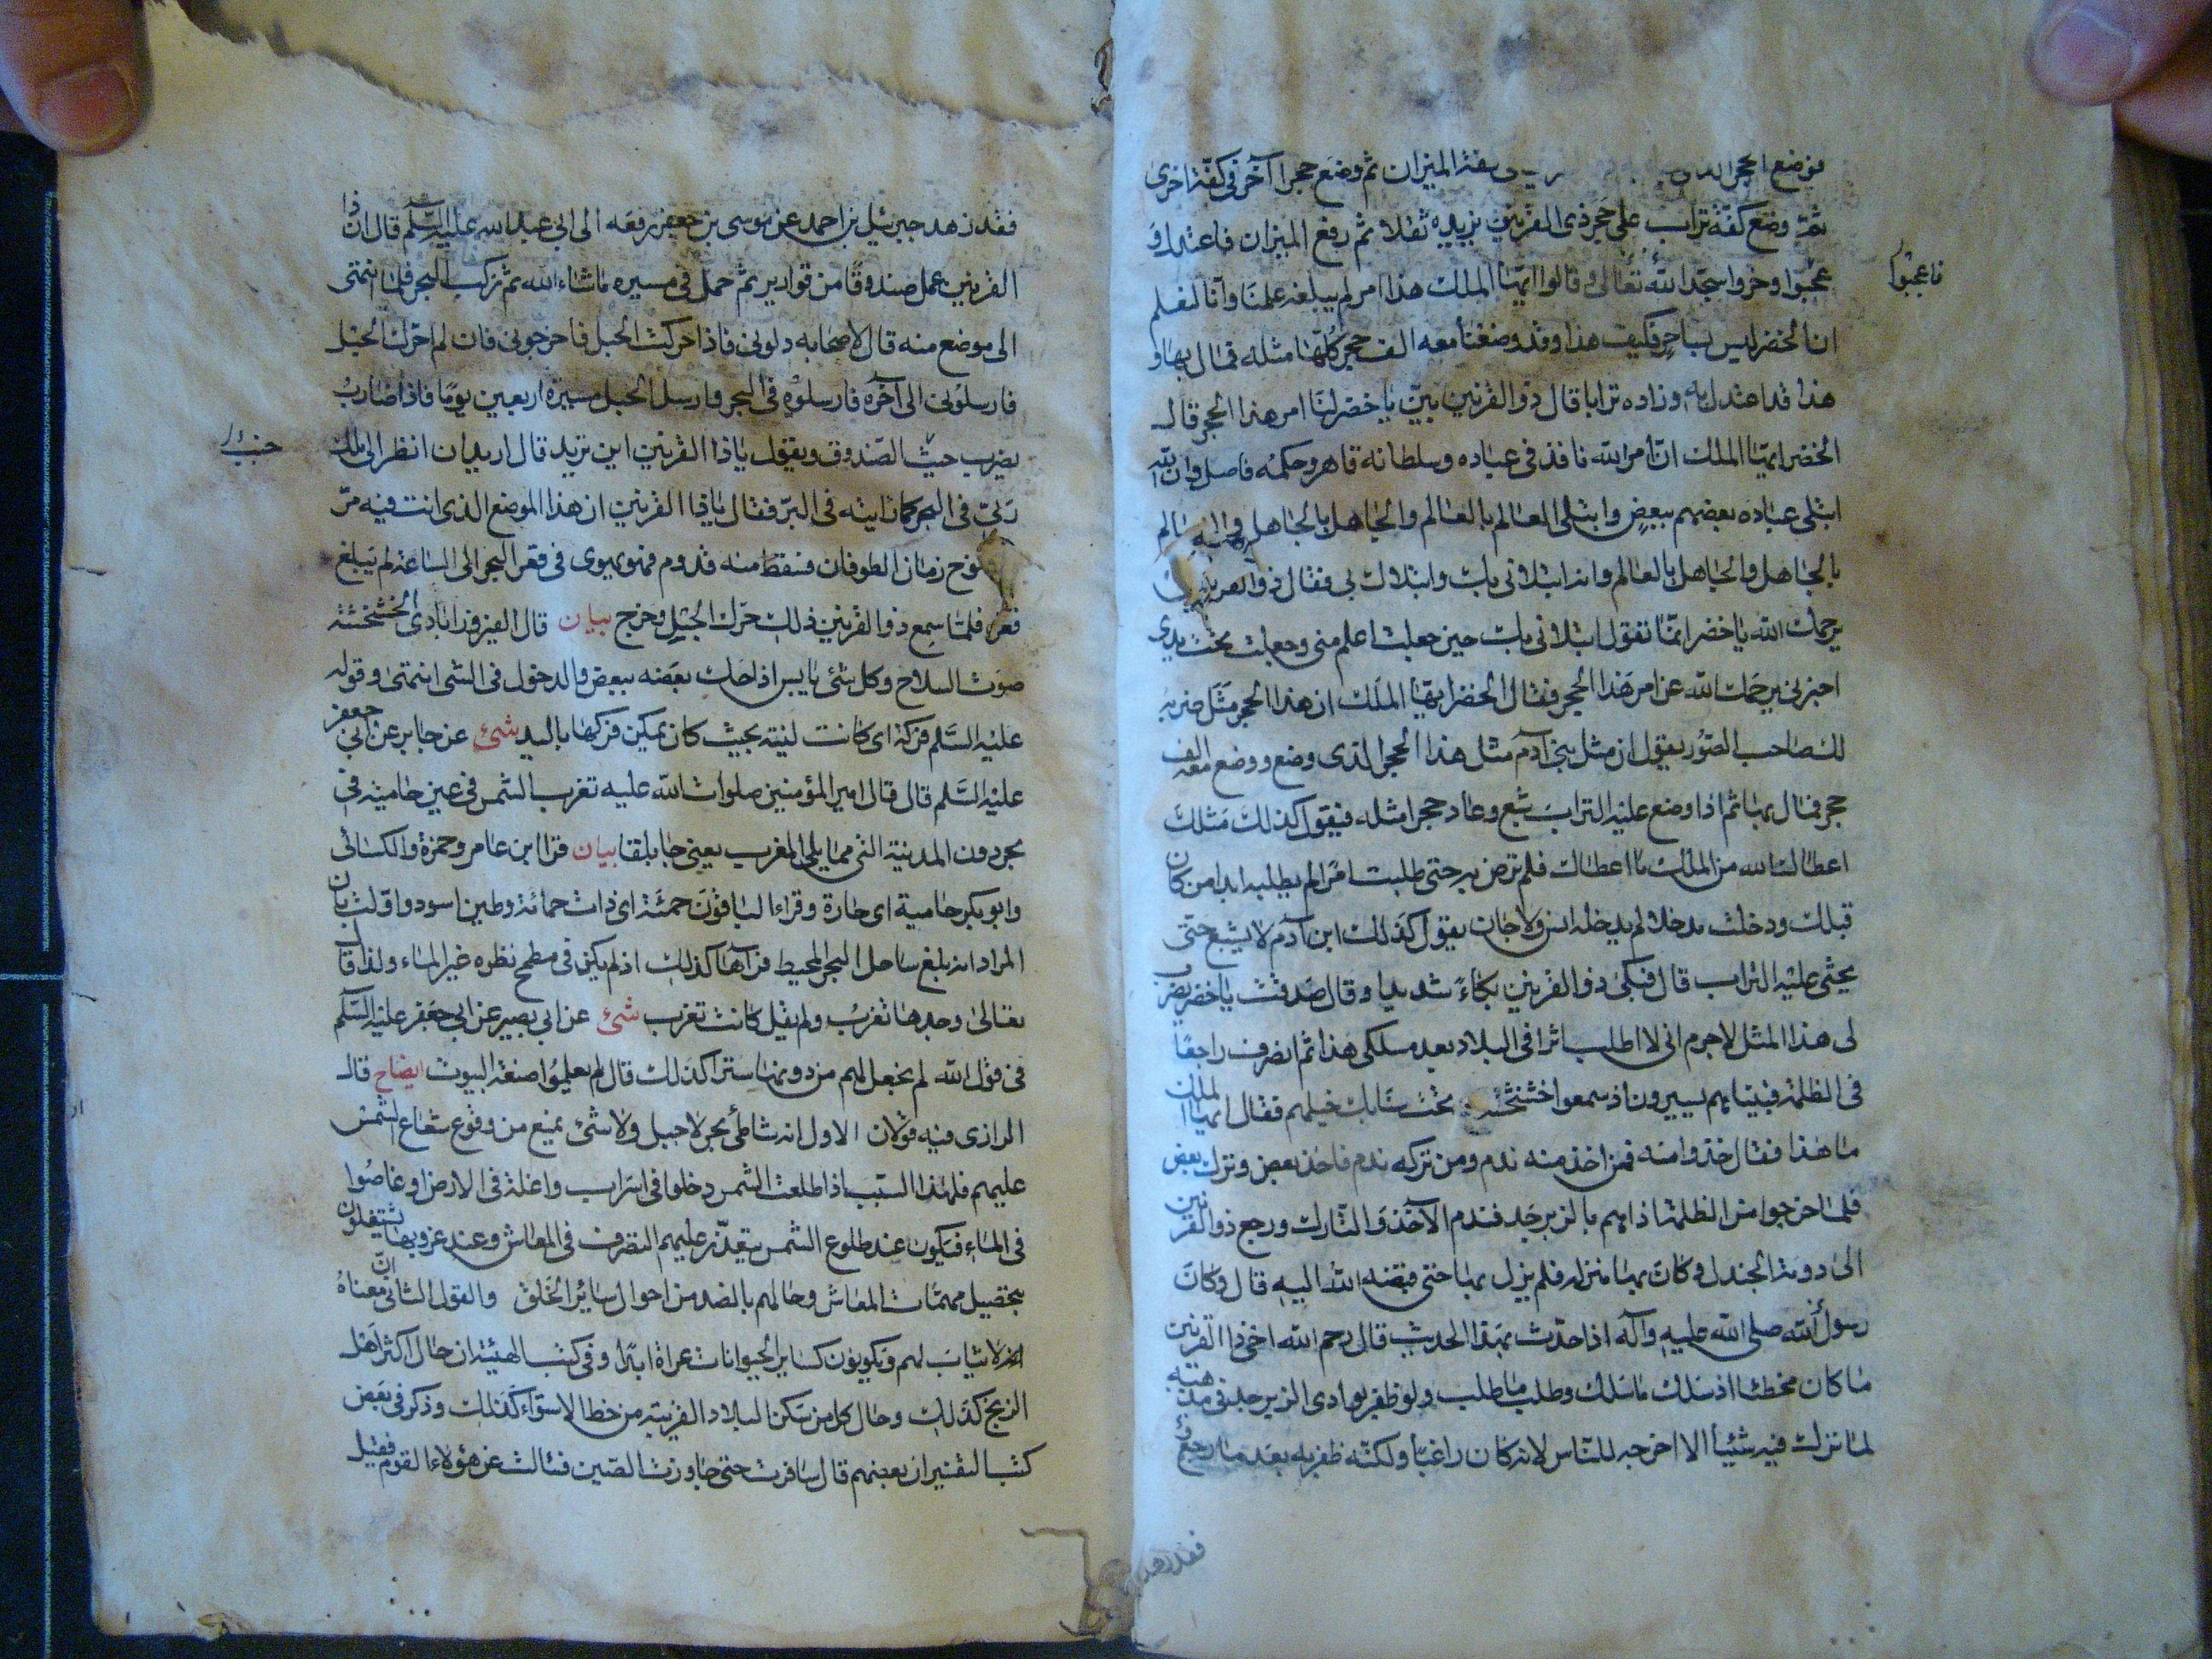 فوضع الحجر الذى كفة الميزان ثم وضع حجرا آخر فى كفة اخرى
ثم وضع كفة تراب على حجر ذى القرنين يزيده ثقلا ثم رفع الميزان فاعتدل و
عجبوا وخروا سجدا لله تعالى وقالوا ايها الملك هذا امر لم يبلغه علمنا وانا لنعلم
فاعجبوا
ان الخضر ليس بساحر فكيف هذا وقد وضعنا معه الف حجر كلها مثله فمال بها و
هذا قد اعتدل به وزاده ترابا قال ذو القرنين بين يا خضر لنا امر هذا الحجر قال
الخضر ايها الملك ان امر الله نافذ فى عباده وسلطانه قاهر وحكمه فاصل وان الله
ابتلى عباده بعضهم ببعض وابتلى العالم بالعالم والجاهل بالجاهل والعالم
بالجاهل والجاهل بالعالم وانه ابتلانى بك وابتلاك بى فقال ذو القرنين
يرحمك الله يا خضر انما تقول ابتلانى بك حين جعلت اعلم منى وجعلت تحت يدى
اخبرنى يرحمك الله عن امر هذا الحجر فقال الخضر ايها الملك ان هذا الحجر مثل ضربه
لك صاحب الصور يقول ان مثل بنى آدم مثل هذا الحجر الذى وضع ووضع معه الف
حجر فمال بها ثم اذا وضع عليه التراب شبع وعاد حجرا مثله فيقول كذلك مثلك
اعطاك الله من الملك ما اعطاك فلم ترض به حتى طلبت امرا لم يطلبه ابدا من كان
قبلك ودخلت مدخلا لم يدخله انس ولا جان يقول كذلك ابن آدم لا يشبع حتى
يحثى عليه التراب قال فبكى ذو القرنين بكاء شديدا وقال صدقت يا خضر يضرب
لى هذا المثل لا جرم انى لا اطلب اثرا فى البلاد بعد مسلكى هذا ثم انصرف راجعا
فى الظلمة فبينا هم يسيرون اذ سمعوا خشخشة تحت سنابك خيلهم فقال ايها الملك
ما هذا فقال خذوا منه فمن اخذ منه ندم ومن تركه ندم فاخذ بعض وترك بعض
فلما خرجوا من الظلمة اذا هم بالزبرجد فندم الآخذ والتارك ورجع ذو القرنين
الى دومة الجندل وكان بها منزله فلم يزل بها حتى قبضه الله اليه قال وكان
رسول الله صلى الله عليه وآله اذا حدث بهذا الحديث قال رحم الله اخى ذا القرنين
ما كان مخطئا اذ سلك ما سلك وطلب ما طلب ولو ظفر بوادى الزبرجد فى مذهبه
لما ترك فيه شيئا الا اخرجه للناس لانه كان راغبا ولكنه ظفر به بعد ما رجع
فقد زهد
فقد زهد جبرئيل بن احمد عن موسى بن جعفر رفعه الى ابى عبد الله عليه السلم قال ان ذا
القرنين عمل صندوقا من قوارير ثم حمل فى مسيره ما شاء الله ثم ركب البحر فلما انتهى
الى موضع منه قال لاصحابه دلونى فاذا حركت الحبل فاخرجونى فان لم احرك الحبل
فارسلونى الى آخره فارسلوه فى البحر وارسل الحبل مسيرة اربعين يوما فاذا ضارب
يضرب حيث الصندوق ويقول يا ذا القرنين اين تريد قال اريد ان انظر الى ملك
ربى فى البحر كما رايته فى البر فقال يا ذا القرنين ان هذا الموضع الذى انت فيه مر
نوح زمان الطوفان فسقط منه قدوم فهو يهوى فى قعر البحر الى الساعة لم يبلغ
قعره فلما سمع ذو القرنين ذلك حرك الحبل وخرج بيان قال الفيروزابادى الخشخشة
صوت السلاح وكل شئ يابس اذا حك بعضه ببعض والدخول فى الشئ انتهى وقوله
عليه السلم فركه اى كانت لينة بحيث كان يمكن فركها باليد شئ عن جابر عن ابى جعفر
عليه السلم قال قال امير المؤمنين صلوات الله عليه تغرب الشمس فى عين حامية فى
بحر دون المدينة التى مما يلى المغرب يعنى جابلقا بيان قرا ابن عامر وحمزة والكسائى
وابو بكر حامية اى حارة وقراء الباقون حمئة اى ذات حمائة وطين اسود واولت بان
المراد انه بلغ ساحل البحر المحيط فرآها كذلك اذ لم يكن فى مطمح نظره غير الماء ولذا قال
تعالى وجدها تغرب ولم يقل كانت تغرب شئ عن ابى بصير عن ابى جعفر عليه السلم
فى قول الله لم نجعل لهم من دونها سترا كذلك قال لم يعلموا صنعة البيوت ايضاح قال
الرازى فيه قولان الاول انه شاطئ بحر لا جبل ولا شئ يمنع من وقوع شعاع الشمس
عليهم فلهذا السبب اذا طلعت الشمس دخلوا فى اسراب واغلة فى الارض او غاصوا
فى الماء فيكون عند طلوع الشمس يتعذر عليهم التصرف فى المعاش وعند غروبها يشتغلون
بتحصيل مهمات المعاش وحالهم بالضد من احوال سائر الخلق والقول الثانى ان معناه
لا ثياب لهم ويكونون كساير الحيوانات عراة ابدا وفى كتب الهيئة ان حال اكثر اهل
الزنج كذلك وحال كل من سكن البلاد القريبة من خط الاستواء كذلك وذكر فى بعض
كتب التفسير ان بعضهم قال سافرت حتى جاوزت الصين فسالت عن هؤلاء القوم فقيل